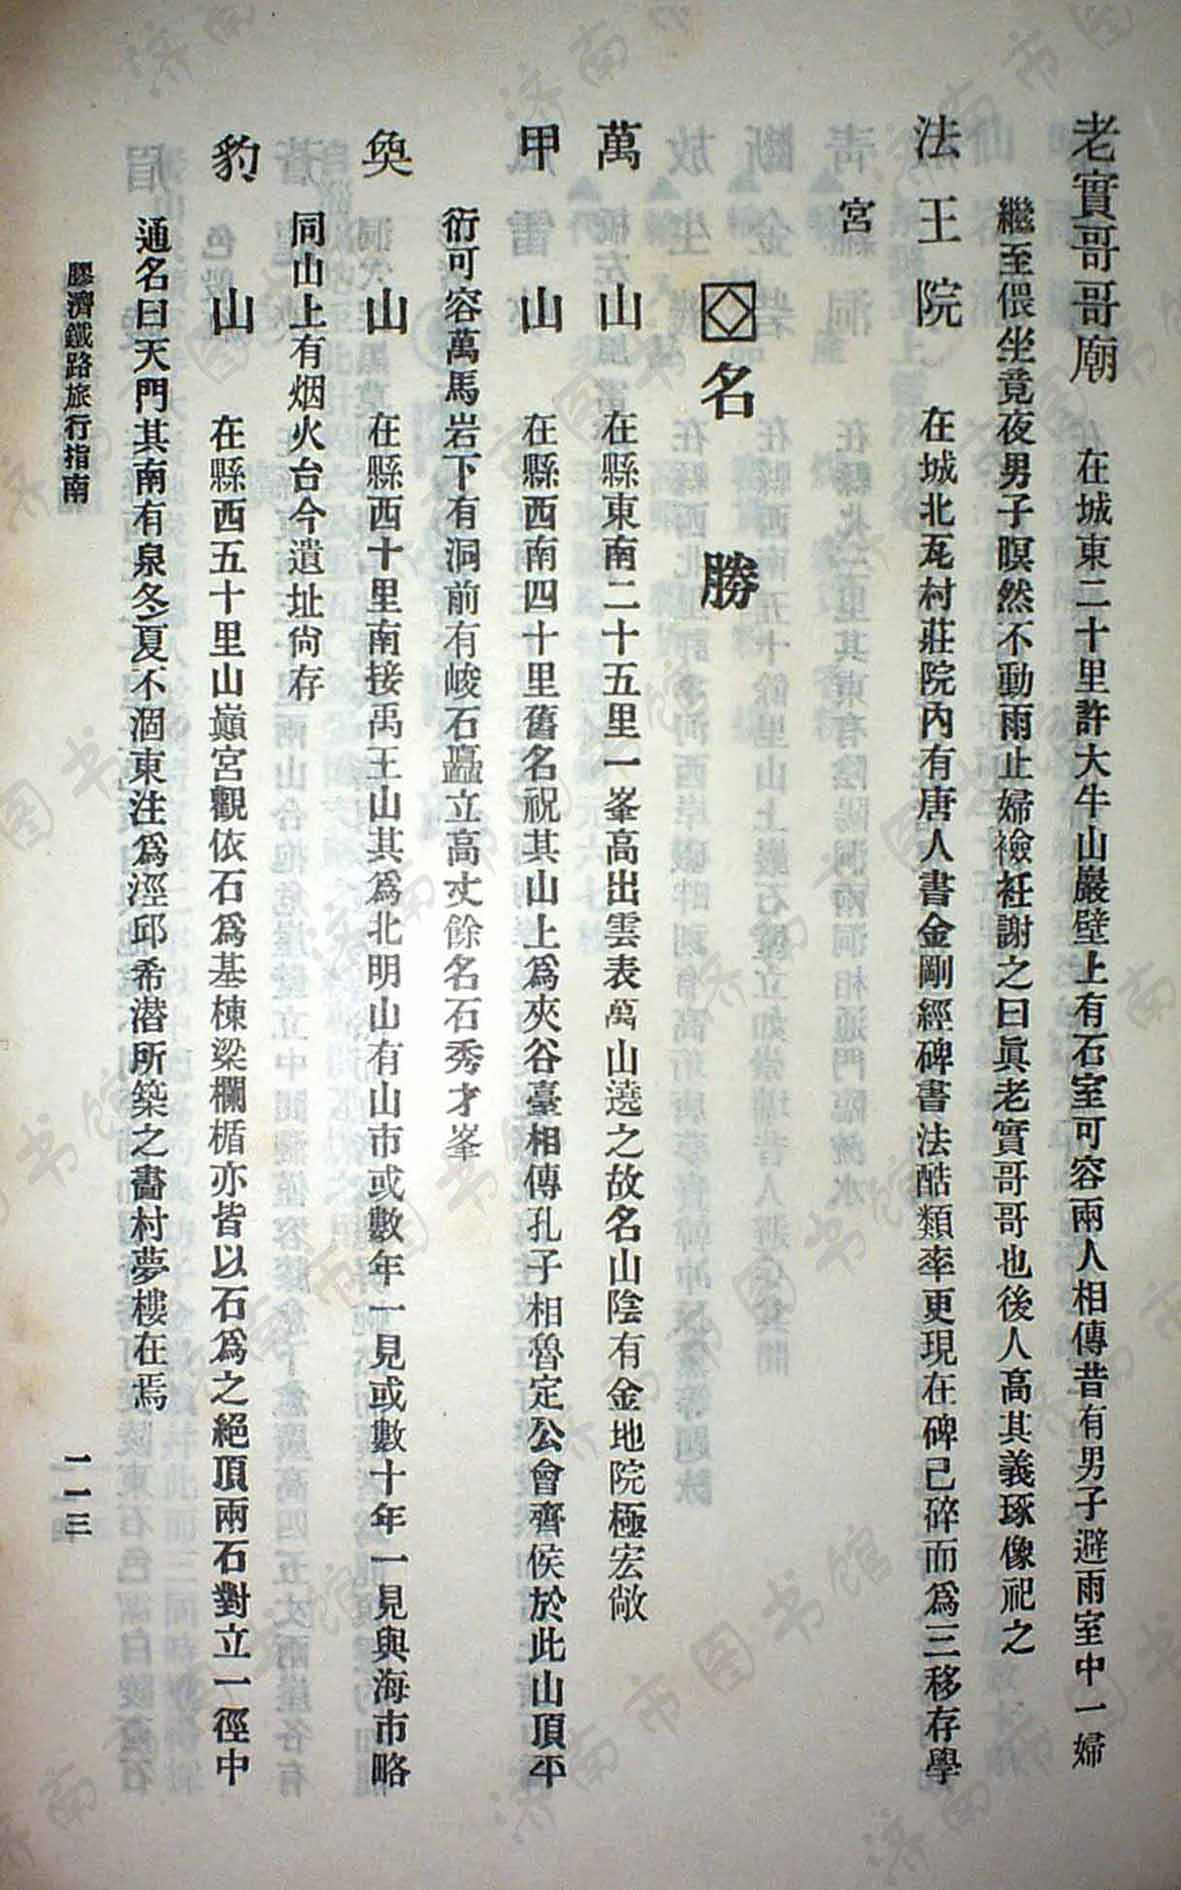 老實哥哥廟　在城東二十里許大牛山巖壁上有石室可容兩人相傳昔有男子避雨室中一婦
繼至偎坐竟夜男子瞑然不動雨止婦襝衽謝之曰眞老實哥哥也後人高其義琢像祀之
法王院　在城北瓦村莊院內有唐人書金剛經碑書法酷類率更現在碑已碎而爲三移存學
宮
名勝
萬山　在縣東南二十五里一峯高出雲表萬山遶之故名山陰有金地院極宏敞
甲山　在縣西南四十里舊名祝其山上爲夾谷臺相傳孔子相魯定公會齊侯於此山頂平
衍可容萬馬岩下有洞前有峻石矗立高丈餘名石秀才峯
奐山　在縣西十里南接禹王山其爲北明山有山市或數年一見或數十年一見與海市略
同山上有烟火台今遺址尙存
豹山　在縣西五十里山巔宮觀依石爲基棟梁欄楯亦皆以石爲之絕頂兩石對立一徑中
通名曰天門其南有泉冬夏不涸東注爲涇邱希潛所築之畵村夢樓在焉
膠濟鐵路旅行指南
一一三
济南市图书馆